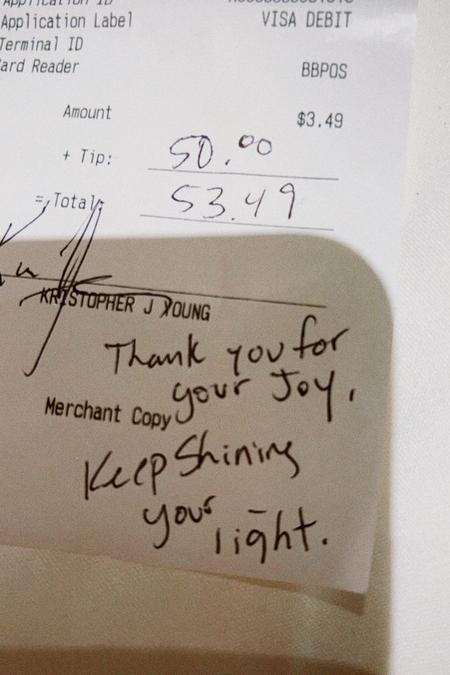 Application ID
Application Label VISA DEBIT
Terminal ID
Card Reader BBPOS
Amount $3.49
+ Tip: 50.00
= Total: 53.49
KRISTOPHER J YOUNG
Thank you for
your Joy.
Merchant Copy
Keep Shining
your
light.